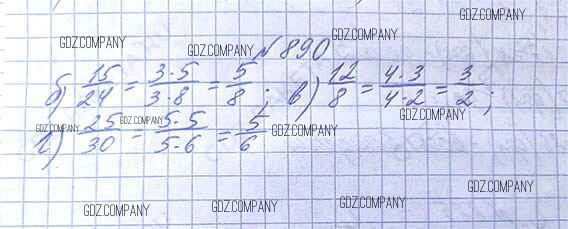 GDZ.COMPANY
GDZ.COMPANY
GDZ.COMPANY
GDZ.COMPANY
№ 890
б) 15/24 = 3·5/3·8 = 5/8; в) 12/8 = 4·3/4·2 = 3/2;
GDZ.COMPANY
GDZ.COMPANY
GDZ.COMPANY
GDZ.COMPANY
г) 25/30 = 5·5/5·6 = 5/6
GDZ.COMPANY
GDZ.COMPANY
GDZ.COMPANY
GDZ.COMPANY